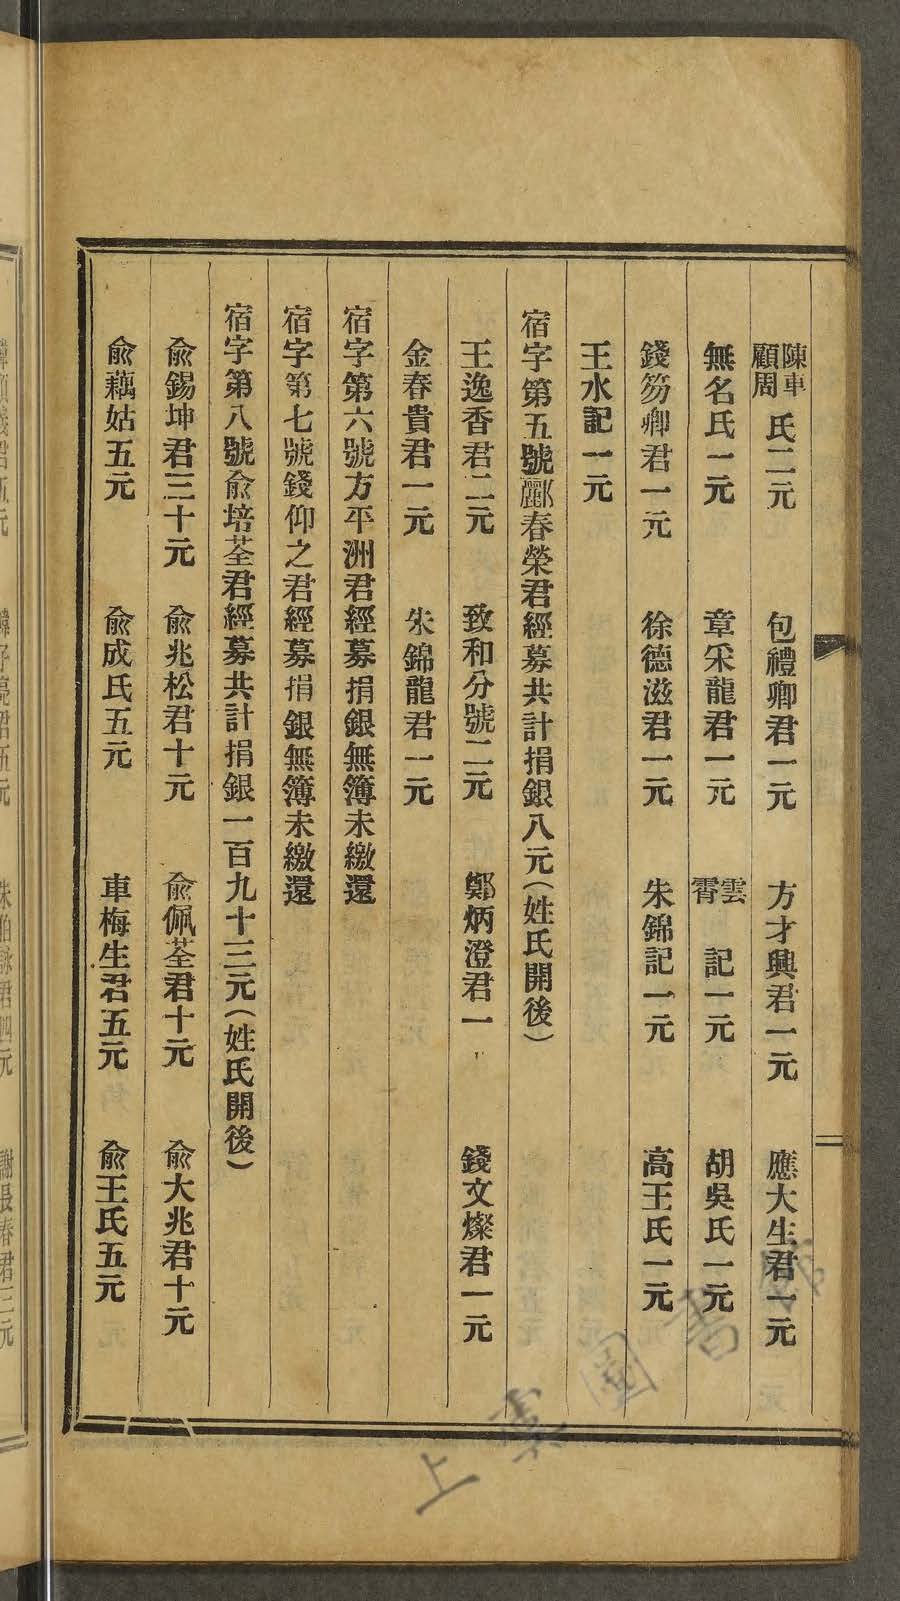 陳車顧周氏二元　包禮卿君一元　方才興君一元　應大生君一元
無名氏一元　章采龍君一元　雲霄記一元　胡吳氏一元
錢笏卿君一元　徐德滋君一元　朱錦記一元　高王氏一元
王水記一元
宿字第五號酈春榮君經募共計捐銀八元（姓氏開後）
王逸香君二元　致和分號二元　鄭炳澄君一　錢文燦君一元
金春貴君一元　朱錦龍君一元
宿字第六號方平洲君經募捐銀無簿未繳還
宿字第七號錢仰之君經募捐銀無簿未繳還
宿字第八號俞培荃君經募共計捐銀一百九十三元（姓氏開後）
俞錫坤君三十元　俞兆松君十元　俞佩荃君十元　俞大兆君十元
俞藕姑五元　俞成氏五元　車梅生君五元　俞王氏五元
上虞圖書館